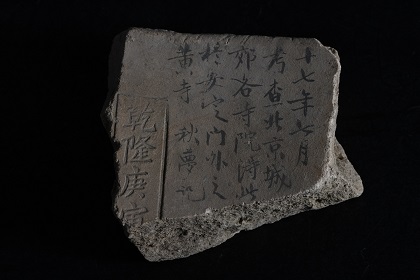 十七年七月
考查北京城
郊各寺院得此
於安定门外之
黄寺 秋夢记
乾隆庚寅